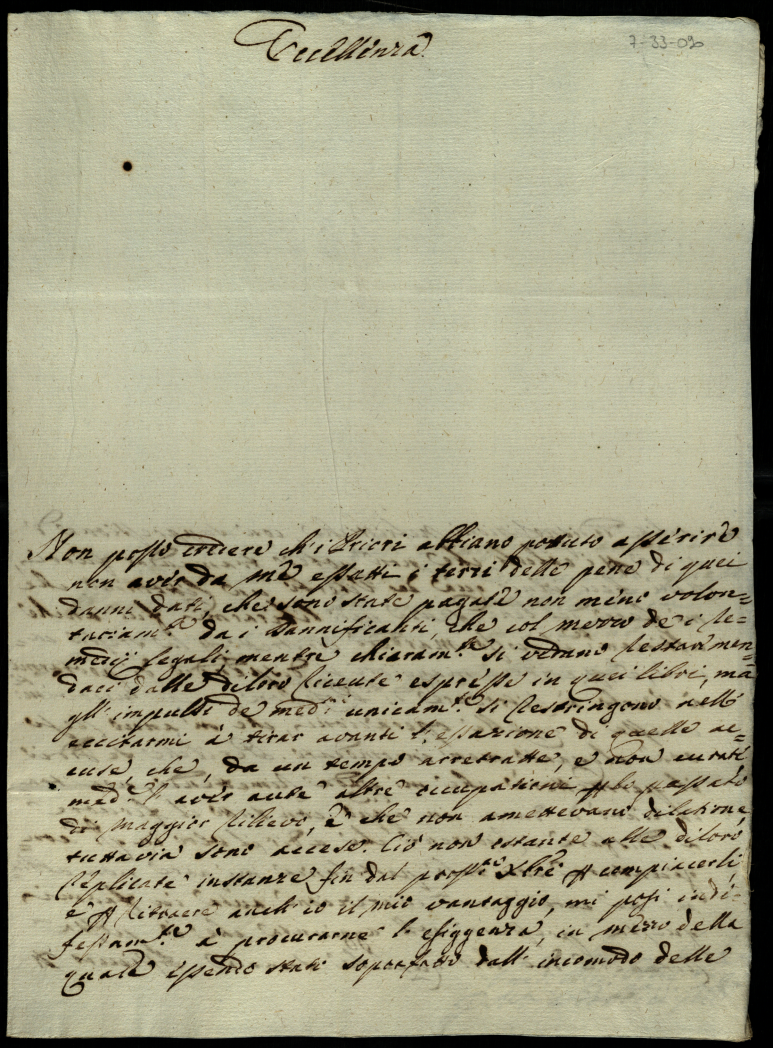 Eccellenza
7-33-020
Non posso credere ch'i Priori abbiano potuto asserire
non aver da me essatti i terzi delle pene di quei
danni dati, che sono state pagate non meno volon=
tariam.te da i Dannificanti, che col mezzo de i re=
medij legali, mentre chiaram.te si vedono restar men=
daci dalle diloro ricevute espresse in quei libri, ma
gl' impulsi de med.i unicam.te si restringono nell'
eccitarmi à tirar avanti l' essazione di quelle ac=
cuse, che, da un tempo arretratte, e non curate
med.e l' aver aute altre occupazioni p lo passato
di maggior rilievo, e che non amettevano dilazione,
tuttavia sono accese. Ciò non ostante alle diloro
replicate instanze fin dal pross.o Xbre p compiacerli,
e p ritraere anch' io il mio vantaggio, mi posi indi=
fessam.te à procurarne l' esiggenza, in mezzo della
quale essendo stati soprafatti dall' incomodo delle